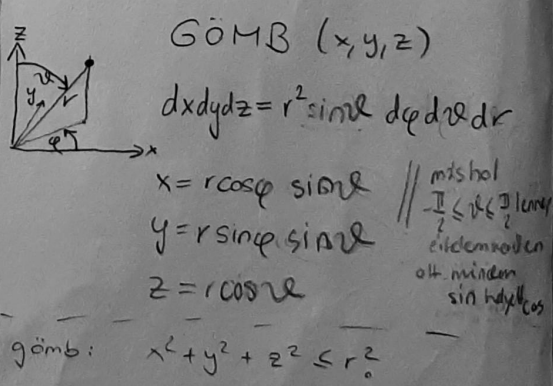 GÖMB (x, y, z)
z
y
ϑ
r
φ
x
dxdydz = r² sinϑ dφ dϑ dr
x = r cosφ sinϑ
y = r sinφ sinϑ
z = r cosϑ
// máshol
-π/2 ≤ ϑ ≤ π/2 lenne
ott minden
sin helyett cos
gömb: x² + y² + z² ≤ r²